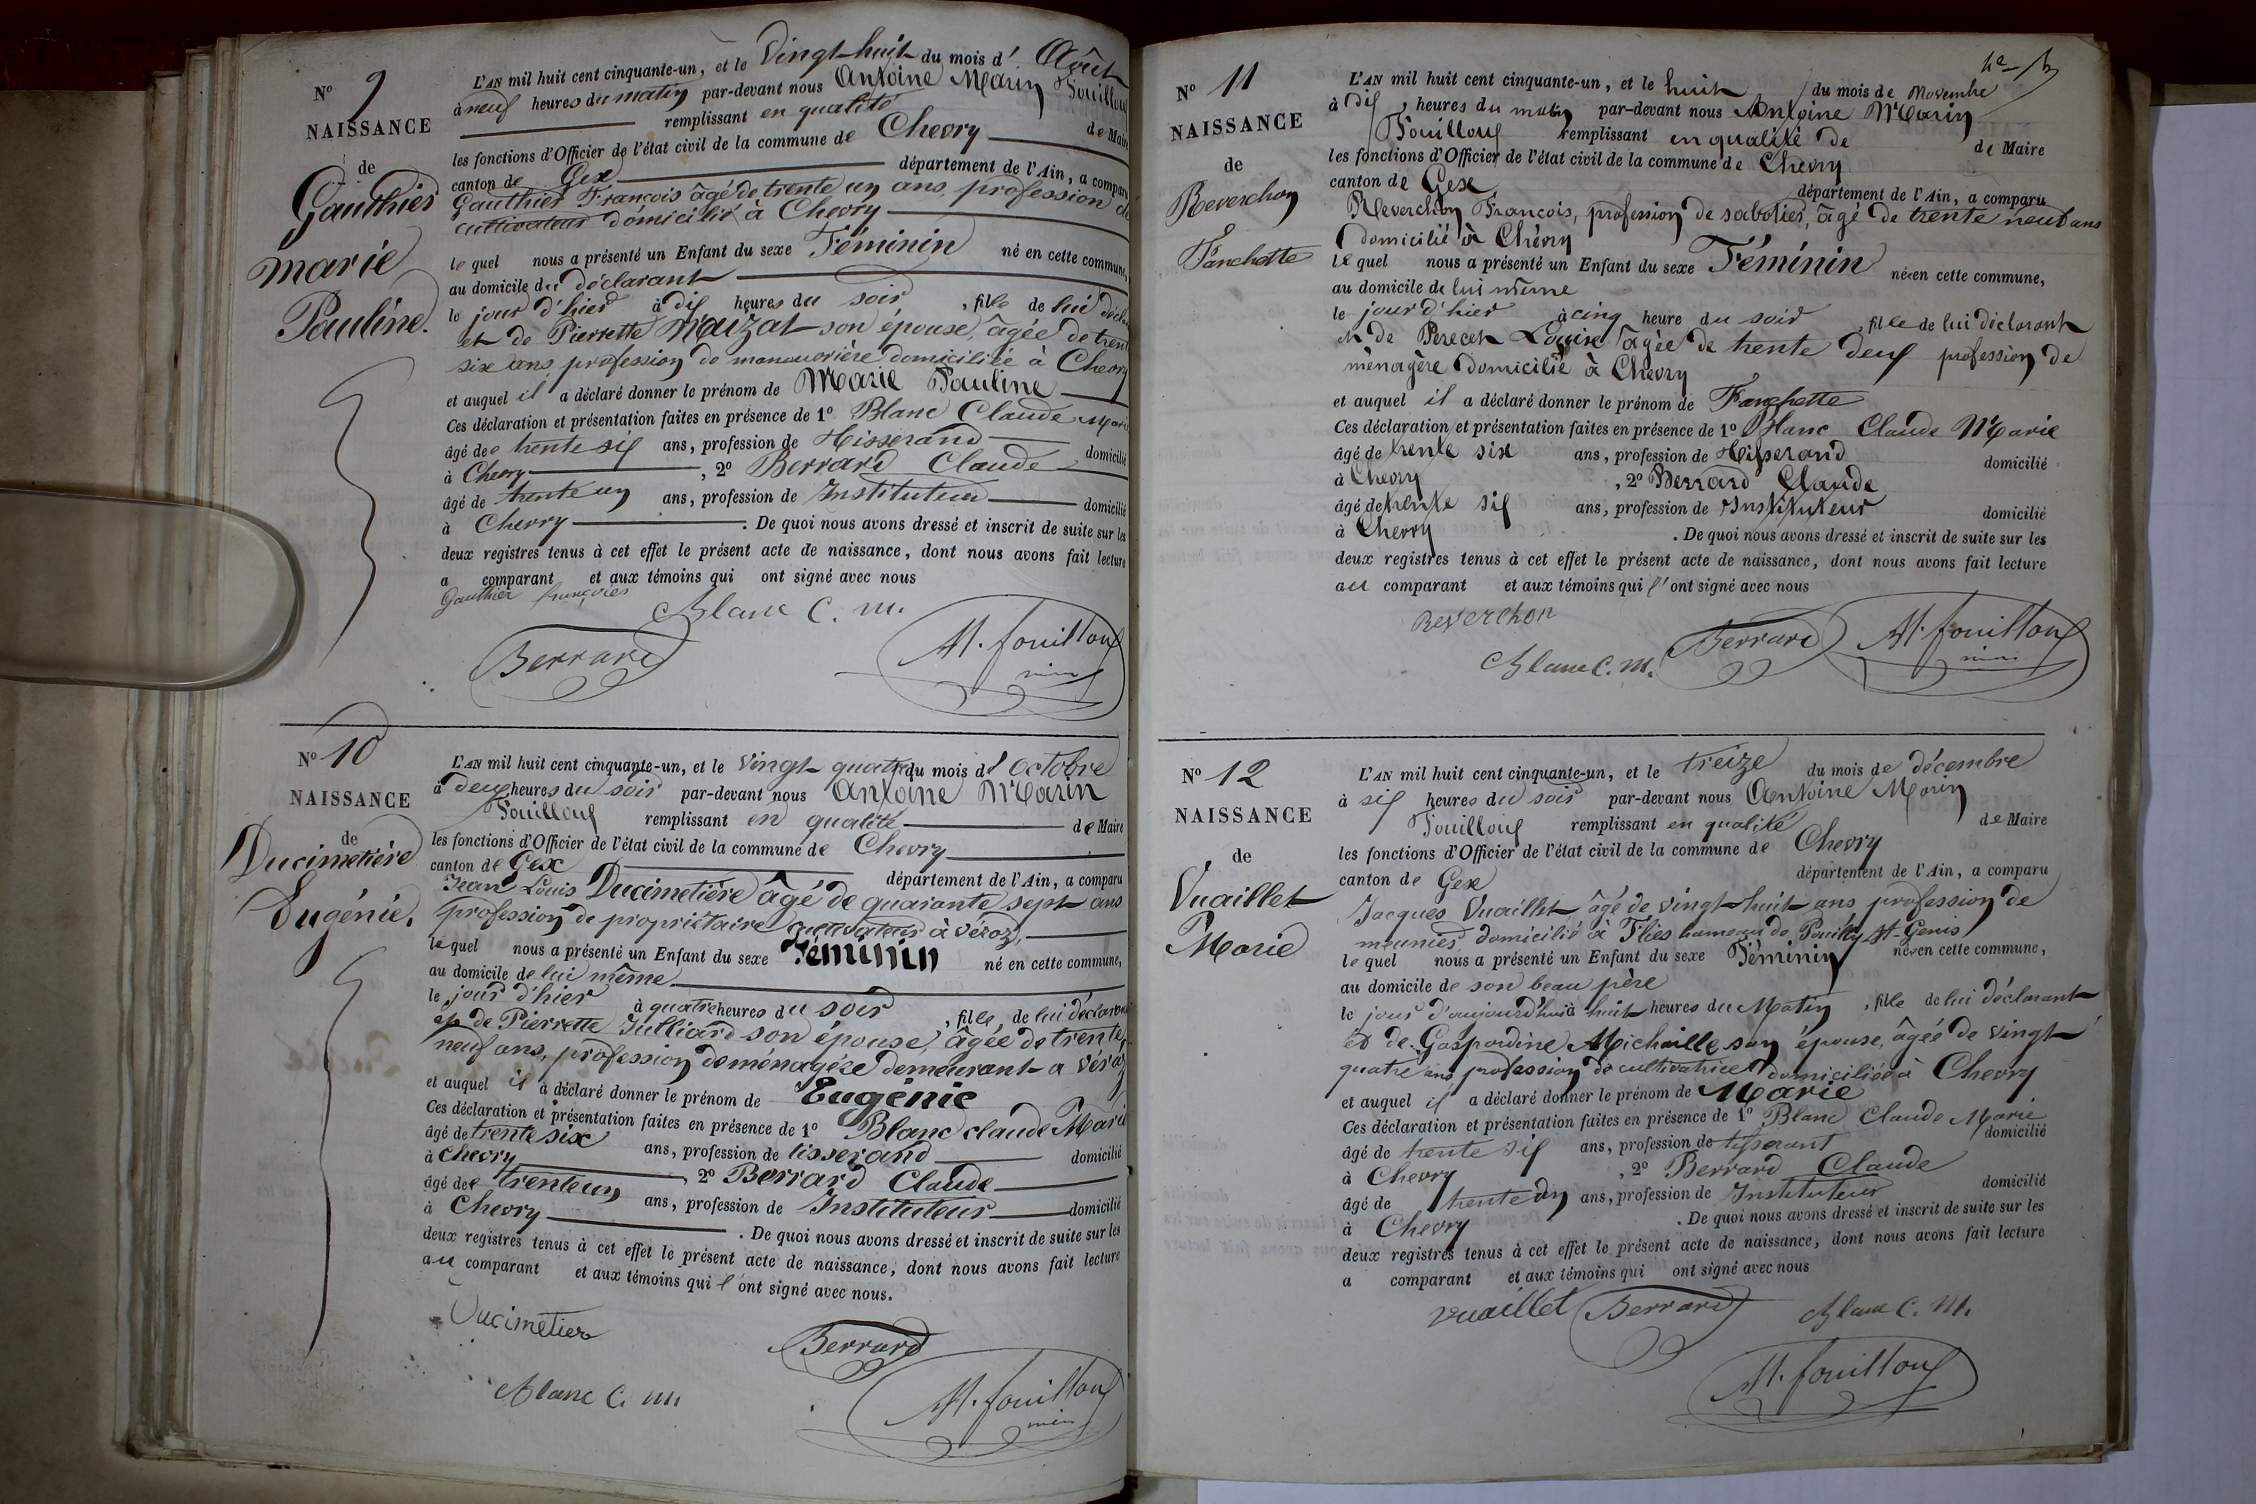 N° 9
NAISSANCE
de
Gauthier
marie
Pauline.
L'AN mil huit cent cinquante-un, et le Vingt-huit du mois d' Août
à neuf heures du matin par-devant nous Antoine Marin Fouilloux
remplissant en qualité de Maire
les fonctions d'Officier de l'état civil de la commune de Chevry
canton de Gex département de l'Ain, a comparu
Gauthier François âgé de trente un ans, profession de
cultivateur domicilié à Chevry
lequel nous a présenté un Enfant du sexe Féminin né en cette commune,
au domicile du déclarant
le jour d'hier à dix heures du soir, fille de lui décla
et de Pierrette Mauzat son épouse, âgée de trente
six ans, profession de manouvrière domiciliée à Chevry
et auquel il a déclaré donner le prénom de Marie Pauline
Ces déclaration et présentation faites en présence de 1° Blanc Claude Marie
âgé de trente six ans, profession de Tisserand domicilié
à Chevry, 2° Berrard Claude
âgé de trente un ans, profession de Instituteur domicilié
à Chevry. De quoi nous avons dressé et inscrit de suite sur les
deux registres tenus à cet effet le présent acte de naissance, dont nous avons fait lecture
a comparant et aux témoins qui ont signé avec nous
Gauthier françois
Blanc C. M.
Berrard
M. fouilloux
N° 10
NAISSANCE
de
Ducimetière
Eugénie.
L'AN mil huit cent cinquante-un, et le Vingt quatre du mois d' octobre
à deux heures du soir par-devant nous Antoine Marin
Fouilloux remplissant en qualité de Maire
les fonctions d'Officier de l'état civil de la commune de Chevry
canton de Gex département de l'Ain, a comparu
Jean Louis Ducimetière âgé de quarante sept ans
profession de propriétaire cultivateur à Véraz,
lequel nous a présenté un Enfant du sexe Féminin né en cette commune,
au domicile de lui même
le jour d'hier à quatre heures du soir, fille de lui déclarant
et de Pierrette Julliard son épouse, âgée de trente
neuf ans, profession de ménagère demeurant a Véraz
et auquel il a déclaré donner le prénom de Eugénie
Ces déclaration et présentation faites en présence de 1° Blanc claude Marie
âgé de trente six ans, profession de tisserand domicilié
à chevry 2° Berrard Claude
âgé de trente un ans, profession de Instituteur domicilié
à Chevry. De quoi nous avons dressé et inscrit de suite sur les
deux registres tenus à cet effet le présent acte de naissance, dont nous avons fait lecture
au comparant et aux témoins qui l'ont signé avec nous.
Ducimetier
Berrard
Blanc C. M.
M. fouilloux
N° 11
NAISSANCE
de
Reverchon
Fanchette
L'AN mil huit cent cinquante-un, et le huit du mois de Novembre
à dix, heures du matin par-devant nous Antoine Marin
Fouilloux remplissant en qualité de de Maire
les fonctions d'Officier de l'état civil de la commune de Chevry
canton de Gex département de l'Ain, a comparu
Reverchon François, profession de sabotier, âgé de trente neuf ans
domicilié à Chevry
lequel nous a présenté un Enfant du sexe Féminin née en cette commune,
au domicile de lui même
le jour d'hier à cinq heure du soir, fille de lui déclarant
et de Perecet Louise âgée de trente deux profession de
ménagère domicilié à Chevry
et auquel il a déclaré donner le prénom de Fanchette
Ces déclaration et présentation faites en présence de 1° Blanc Claude Marie
âgé de trente six ans, profession de Tisserand domicilié
à Chevry, 2° Berrard Claude
âgé de trente six ans, profession de Instituteur domicilié
à Chevry. De quoi nous avons dressé et inscrit de suite sur les
deux registres tenus à cet effet le présent acte de naissance, dont nous avons fait lecture
au comparant et aux témoins qui l'ont signé avec nous
Reverchon
Blanc C. M.
Berrard
M. fouilloux
N° 12
NAISSANCE
de
Vuaillet
Marie
L'AN mil huit cent cinquante-un, et le treize du mois de décembre
à six heures du soir par-devant nous Antoine Marin
Fouilloux remplissant en qualité de Maire
les fonctions d'Officier de l'état civil de la commune de Chevry
canton de Gex département de l'Ain, a comparu
Jacques Vuaillet, âgé de vingt-huit ans profession de
meunier domicilié à Flies hameau de Pouilly St-Genis
lequel nous a présenté un Enfant du sexe Féminin née en cette commune,
au domicile de son beau père
le jour d'aujourd'hui à huit heures du Matin, fille de lui déclarant
et de Gaspardine Michaille son épouse, âgée de vingt
quatre ans, profession de cultivatrice domiciliée à Chevry
et auquel il a déclaré donner le prénom de Marie
Ces déclaration et présentation faites en présence de 1° Blanc Claude Marie
âgé de trente six ans, profession de tisserant domicilié
à Chevry, 2° Berrard Claude
âgé de trente un ans, profession de Instituteur domicilié
à Chevry. De quoi nous avons dressé et inscrit de suite sur les
deux registres tenus à cet effet le présent acte de naissance, dont nous avons fait lecture
a comparant et aux témoins qui ont signé avec nous
Vuaillet
Berrard
Blanc C. M.
M. fouilloux